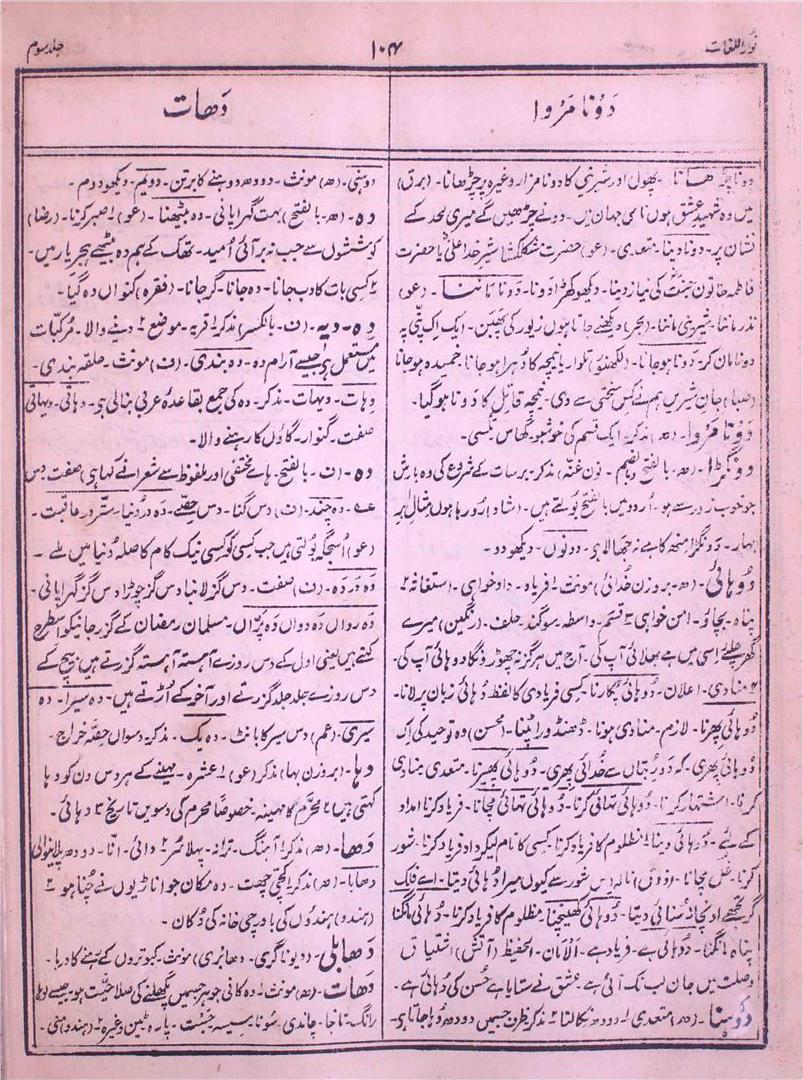 نور اللغات
۱۰۴
جلد سوم
دَوْنا مَرْوا
دَھات
دونا چڑھانا۔ پھول اور شیرینی کا دونا مزار وغیرہ پر چڑھانا۔ (برق)
میں وہ شہیدِ عشق ہوں نامی جہان میں۔ دونے چڑھیں گے میری لحد کے
نشان پر۔ دونا دینا۔ متعدی۔ (عو) حضرت مشکلکشا شیرِ خدا علیؓ یا حضرت
فاطمہ خاتونِ جنتؓ کی نیاز دینا۔ دیکھو کھڑا دونا۔ دونا ماننا۔ (عو)
نذر ماننا۔ شیرینی ماننا۔ (بحر) دیکھنے جاتا ہوں زیور کی پھبن۔ ایک اک پتّی پہ
دونا مان کر۔ دَونا ہو جانا۔ (لکھنؤ) تلوار یا نیچہ کا دُہرا ہو جانا۔ خمیدہ ہو جانا
(صبا) جانِ شیریں ہم نے کس سختی سے دی۔ نیچہ قاتل کا دَونا ہو گیا۔
دَونا مَرْوا۔ (ھ) مذکر۔ ایک قسم کی خوشبو گھاس۔ تلسی۔
دَونگڑا۔ (ھ۔ بالفتح و بالضم۔ نون غنّہ) مذکر۔ برسات کے شروع کی وہ بارش
جو خوب زور سے ہو۔ اُردو میں بالفتح بولتے ہیں۔ (شاد) رو رہا ہوں مثالِ ابر
بہار۔ دَونگڑا منھ کا ہے نہ جھالا ہو۔ دونوں۔ دیکھو دو۔
دُوہائی۔ (ھ۔ بروزن خُدائی) مونث۔ ۱ فریاد۔ دادخواہی۔ استغاثہ ۲
پناہ۔ بچاؤ۔ امن خواہی ۳ قسم۔ واسطہ۔ سوگند۔ حلف۔ (رنگین) میرے
گھر چلئے اسی میں ہے بھلائی آپ کی۔ آج میں ہرگز نہ چھوڑونگا دوہائی آپ کی۔
۴ منادی۔ اعلان۔ دُوہائی پکارنا۔ کسی فریادی کا لفظ دُوہائی زبان پر لانا۔
دُوہائی پھرنا۔ لازم۔ منادی ہونا۔ ڈھنڈورا پٹنا۔ (محسن) وہ توحید کی اک
دُوہائی پھری۔ کہ دَور بُتاں سے خُدائی پھری۔ دُوہائی پھیرنا۔ متعدی منادی
کرنا۔ اشتہار کرنا۔ دُوہائی تہائی کرنا۔ دُوہائی تہائی مچانا۔ فریاد کرنا امداد
کے لئے۔ دُوہائی دینا۔ ۱ مظلوم کا فریاد کرنا۔ کسی کا نام لیکر او فریاد کرنا۔ شور
کرنا۔ غل مچانا۔ (ذوق) نالہ اس شور سے کیوں میرا دُہائی دیتا۔ اے فلک
گر تجھے اونچا نہ سُنائی دیتا۔ دُوہائی کھینچنا۔ مظلوم کا فریاد کرنا۔ دُوہائی مانگنا
پناہ مانگنا۔ دُوہائی ہے۔ فریاد ہے۔ الاماں۔ الحفیظ (آتش) اشتیاق
وصلت میں جان لب تک آئی ہے۔ عشق نے ستایا ہے حُسن کی دُہائی ہے۔
دُوہنا۔ (ھ) متعدی ۱۔ دودھ نکالنا ۲۔ مذکر۔ ظرف جسمیں دودھ دوہا جاتا ہے۔
دوہنی۔ (ھ) مونث۔ دودھ دوہنے کا برتن۔ دویم۔ دیکھو دوم۔
دہ۔ (ھ۔ بالفتح) بہت گہرا پانی۔ دہ بیٹھنا۔ (عو) ۱ صبر کرنا۔ (رضا)
کوششوں سے جب نہ بر آئی اُمید۔ تھک کے ہم دہ بیٹھے ہجر یار میں۔
۲ کسی بات کا دب جانا۔ دہ جانا۔ گر جانا۔ (فقرہ) کنواں دہ گیا۔
دِہ۔ دیہ۔ (ف۔ بالکسر) مذکر ۱ قریہ۔ موضع ۲ دینے والا۔ مرکبّات
میں مستعمل ہے جیسے آرام دہ۔ دہ بندی۔ (ف) مونث۔ حلقہ بندی۔
دہات۔ دیہات۔ مذکر۔ دہ کی جمع بقاعدۂ عربی بنا لی ہے۔ دہاتی۔ دیہاتی
صفت۔ گنوار۔ گاؤں کا رہنے والا۔
دہ۔ (ف۔ بالفتح۔ ہائے مختفی اور ملفوظ سے شعرا نے کہا ہے) صفت۔ دس
عہ۔ دہ چند۔ (ف) دس گنا۔ دس حصّے۔ دَہ در دُنیا ستّر در عاقبت۔
(عو) اُسجگہ بولتی ہیں جب کسی کو کسی نیک کام کا صلہ دُنیا میں ملے۔
دَہ دَردَہ۔ (ف) صفت۔ دس گز لانبا دس گز چوڑا دس گز گہرا پانی۔
دَہ رواں دَہ دواں دَہ پَرّاں۔ مسلمان رمضان کے گزر جانیکو اسطرح
کہتے ہیں یعنی اول کے دس روزے آہستہ آہستہ گزرتے ہیں، بیچ کے
دس روزے جلد جلد گزرتے اور آخر کے اُڑتے ہیں۔ دہ سیرا۔ دہ
سیری۔ (عم) دس سیر کا بانٹ۔ دہ یک۔ مذکر۔ دسواں حصّہ خراج۔
دہا۔ (بروزن بہا) مذکر (عو) ۱ عشرہ۔ مہینے کے ہر دس دن کو دہا
کہتی ہیں ۲ محرّم کا مہینہ۔ خصوصاً محرم کی دسویں تاریخ ۳ دہائی۔
دھا۔ (ھ) مذکر ۱ آہنگ۔ ترانہ۔ پہلا سُر ۲ دائی۔ انّا۔ دودھ پلانیوالی
دھابا۔ (ھ) مذکر ۱ کچی چھت۔ دہ مکان جو اناڑیوں نے چُنا ہو ۲
(ہندو) ہندوں کی باورچی خانہ کی دُکان۔
دَھابلی۔ (دیوناگری۔ دھابری) مونث۔ کبوتروں کے رہنے کا دربا۔
دَھات۔ (ھ) مونث ۱۔ دہ کانی جوہر جسمیں پگھلنے کی صلاحیت ہو۔ جیسے لوہا
رانگ۔ تانبا۔ چاندی۔ سونا۔ سیسہ۔ جست۔ پارہ۔ ٹین وغیرہ ۲ (ہندو) منی۔